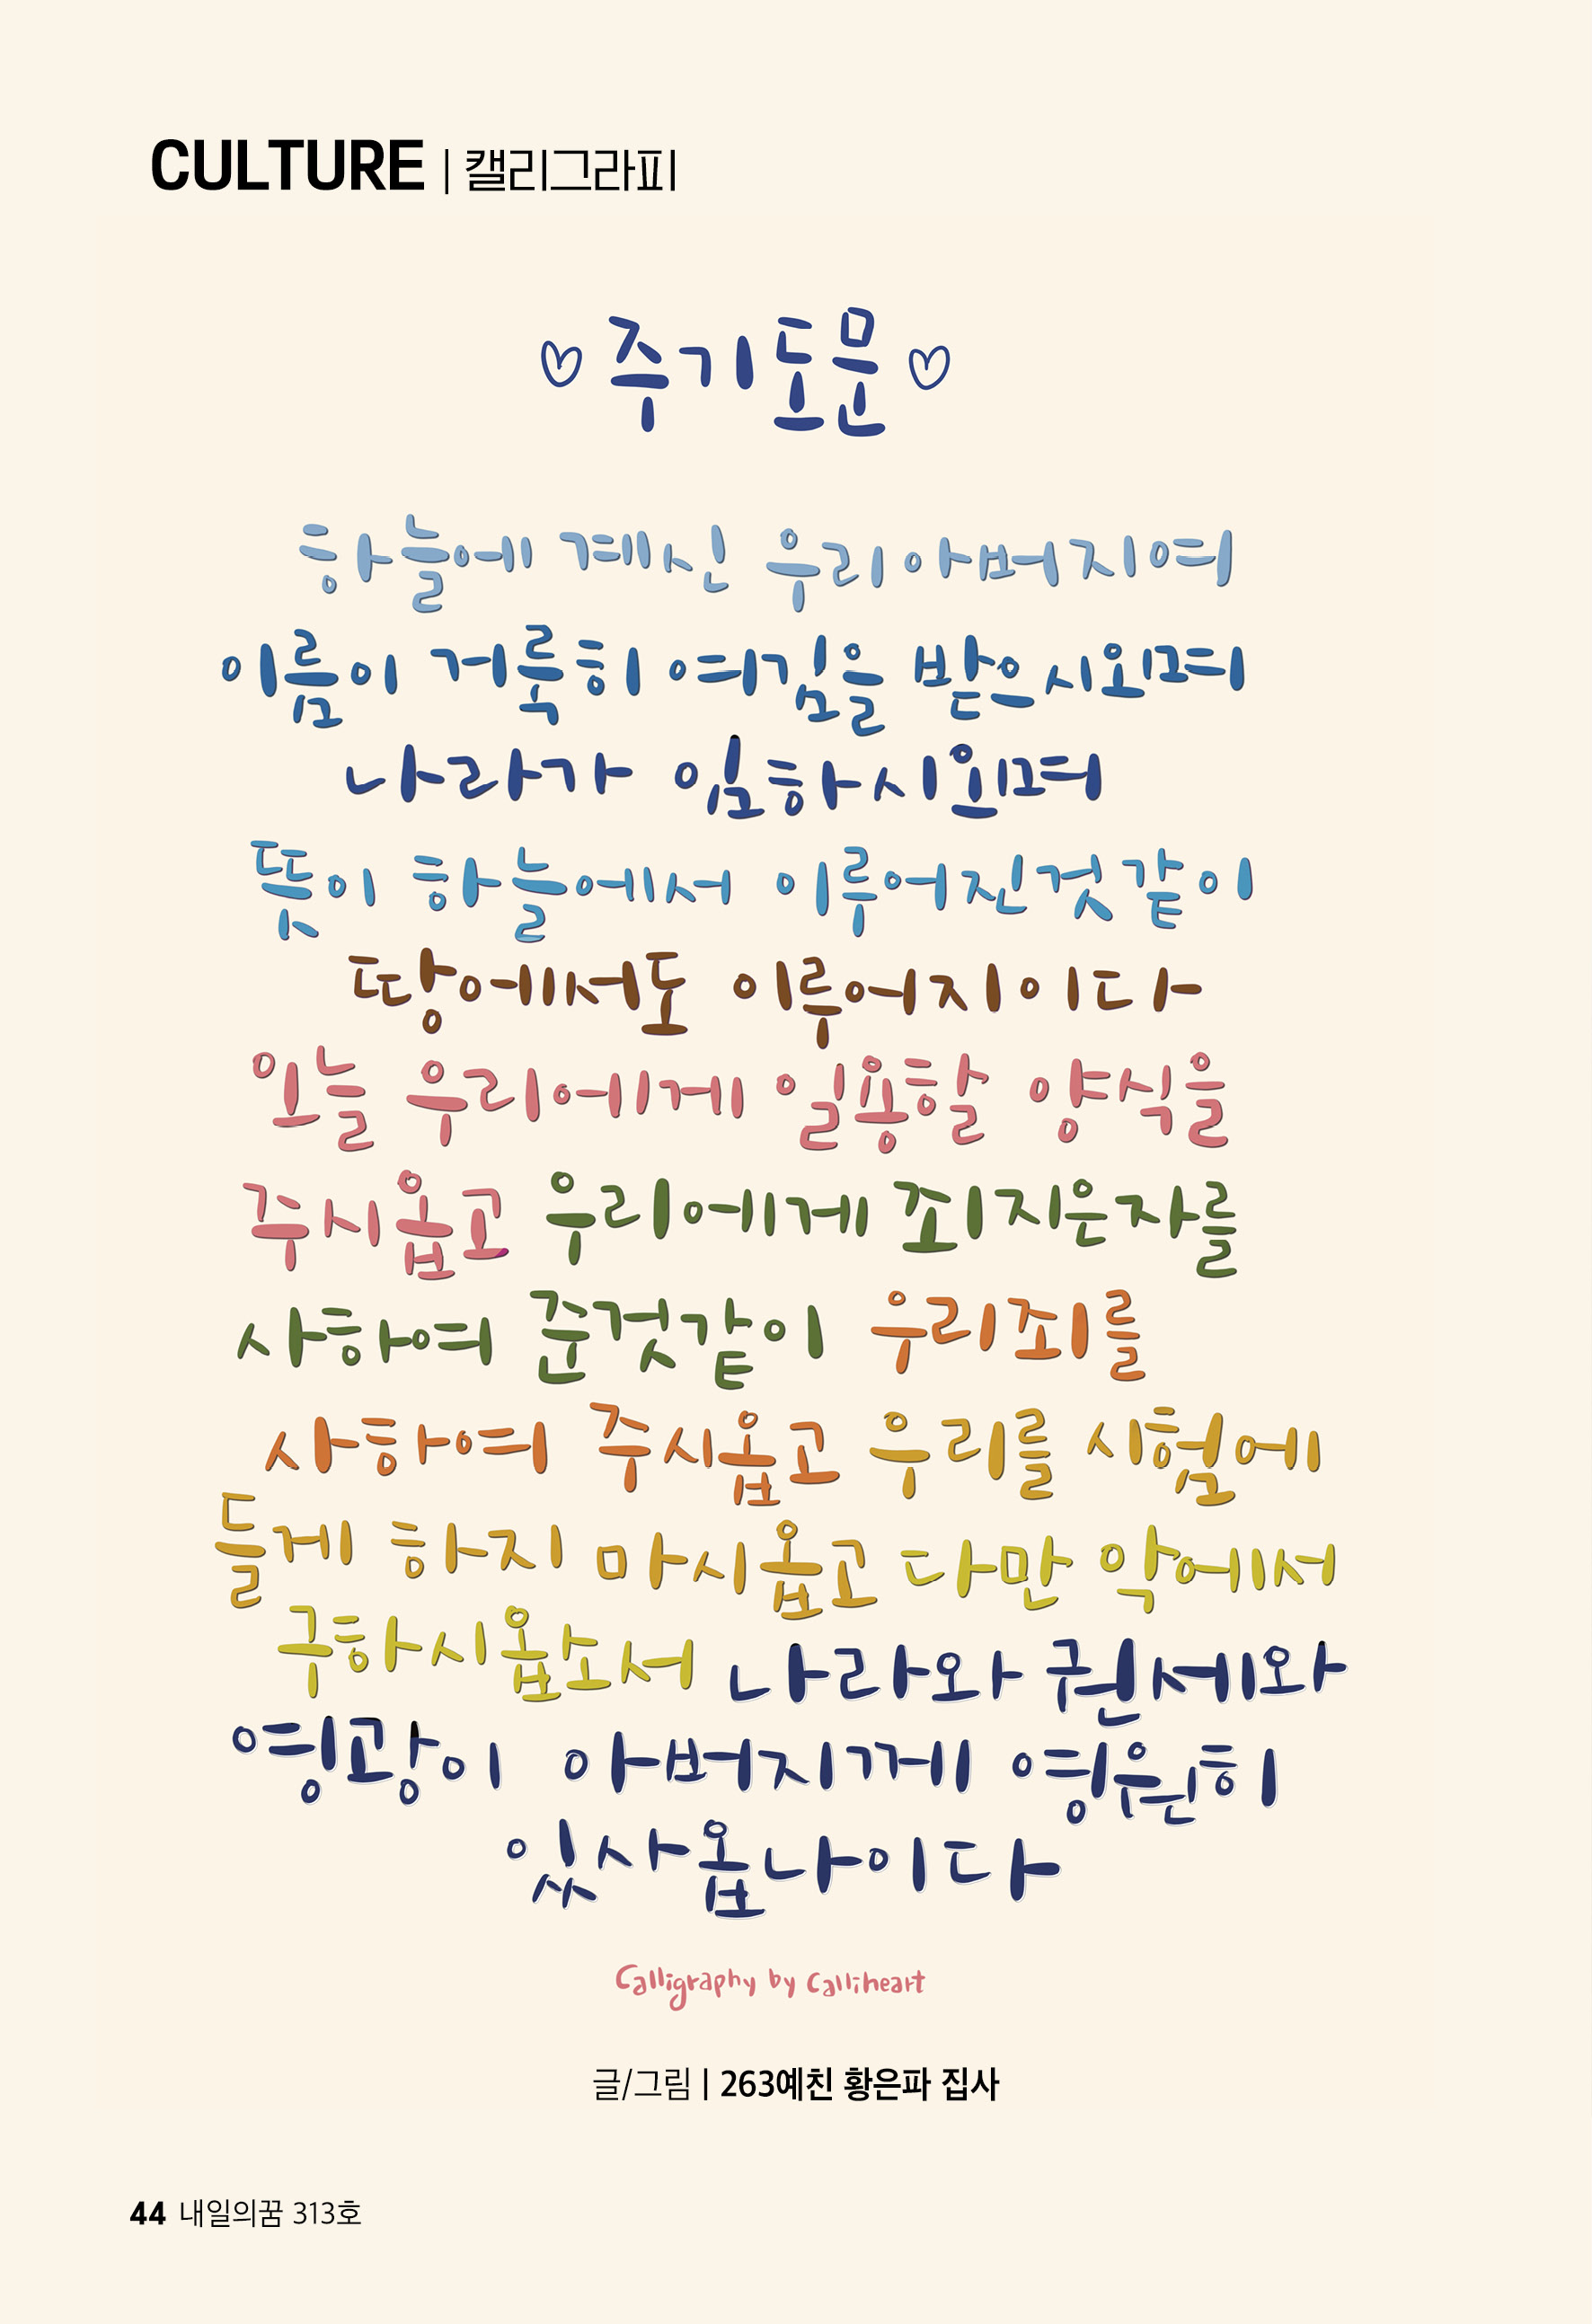 CULTURE | 캘리그라피
♡주기도문♡
하늘에 계신 우리아버지여
이름이 거룩히 여김을 받으시오며
나라가 임하시오며
뜻이 하늘에서 이루어진것같이
땅에서도 이루어지이다
오늘 우리에게 일용할 양식을
주시옵고 우리에게 죄지은자를
사하여 준것같이 우리죄를
사하여 주시옵고 우리를 시험에
들게 하지 마시옵고 다만 악에서
구하시옵소서 나라와 권세와
영광이 아버지께 영원히
있사옵나이다
Calligraphy by Calliheart
글/그림 | 263예친 황은파 집사
44 내일의꿈 313호